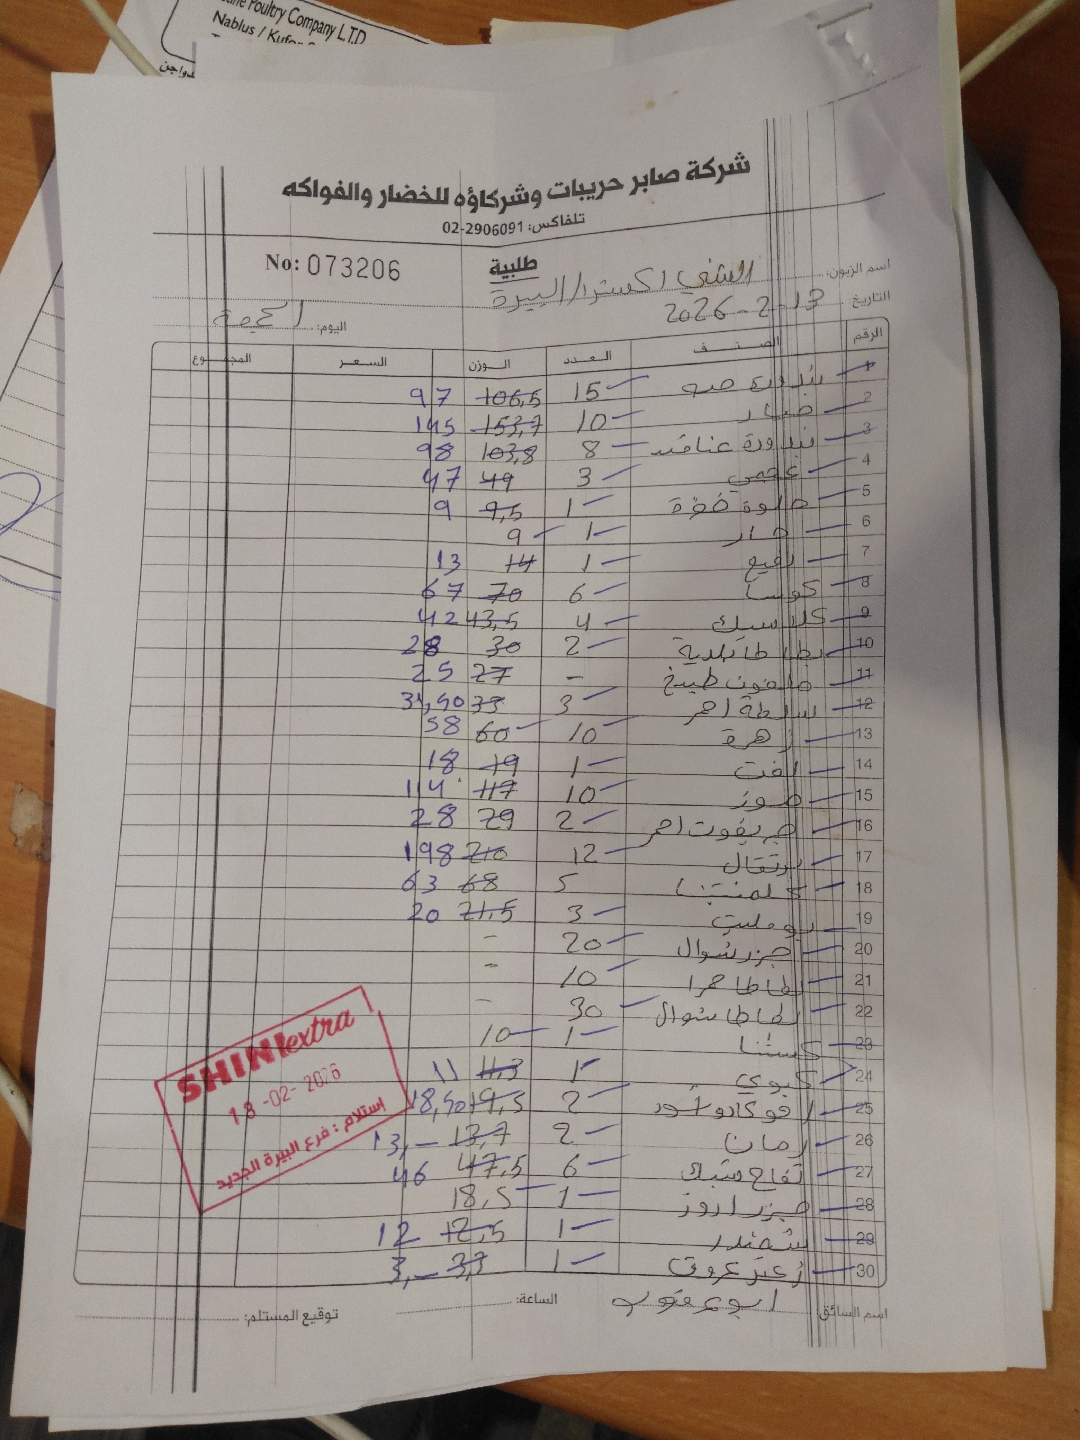 Poultry Company L.T.D
Nablus /
شركة صابر حريبات وشركاؤه للخضار والفواكه
تلفاكس: 02-2906091
No: 073206
طلبية
اسم الزبون: الشني اكسترا/البيرة
التاريخ 2026-2-13
اليوم: الجمعة
الرقم الصنف العدد الوزن السعر المجموع
1 بندورة حبه 15 106,5 97
2 خيار 10 153,7 145
3 بندورة عناقيد 8 103,8 98
4 عجمي 3 49 47
5 حلوة خضرة 1 9,5 9
6 حار 1 9
7 رفيع 1 14 13
8 كوسا 6 70 67
9 كلاسيك 4 43,5 42
10 بطاطا بلدية 2 30 28
11 ملفوف طبيخ - 27 25
12 سلطة احمر 3 33 31,90
13 زهرة 10 60 58
14 لفت 1 19 18
15 موز 10 117 114
16 جريفوت احمر 2 29 28
17 برتقال 12 210 198
18 كلمنتينا 5 68 63
19 بومليت 3 21,5 20
20 جزر شوال 20 -
21 بطاطا حمرا 10 -
22 بطاطا شوال 30 -
23 كستنا 1 10
24 كيوي 1 11,3 11
25 افوكادو اسود 2 19,5 18,90
26 رمان 2 13,7 13,-
27 تفاح سبك 6 47,5 46
28 جزر اروز 1 18,5
29 شمندر 1 12,5 12
30 زعتر عروق 1 3,3 3,-
SHINI extra
18-02-2026
استلام : فرع البيرة الجديد
اسم السائق: ابو يعقوب
الساعة:
توقيع المستلم: